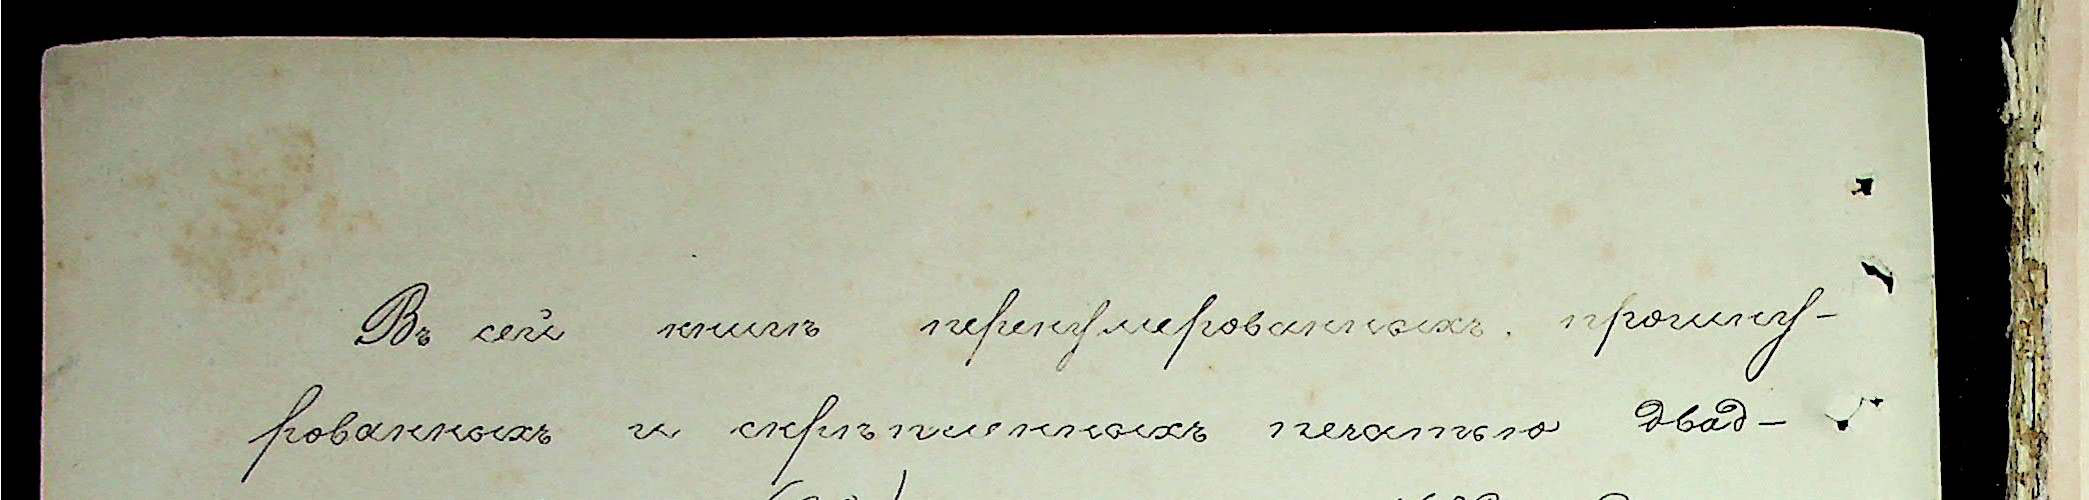 Въ сей книгѣ перенумерованныхъ, прошну-
рованныхъ и скрѣпленныхъ печатью двад-